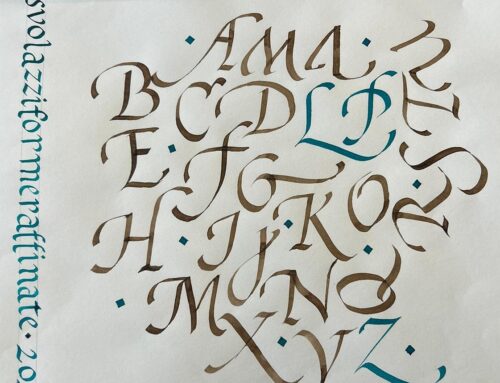 svolazziformeraffinate · 20
· A M A ·
B C D L P
E · F G
H · I J · K O · R · S T U
· M · N Q
X · Y Z ·